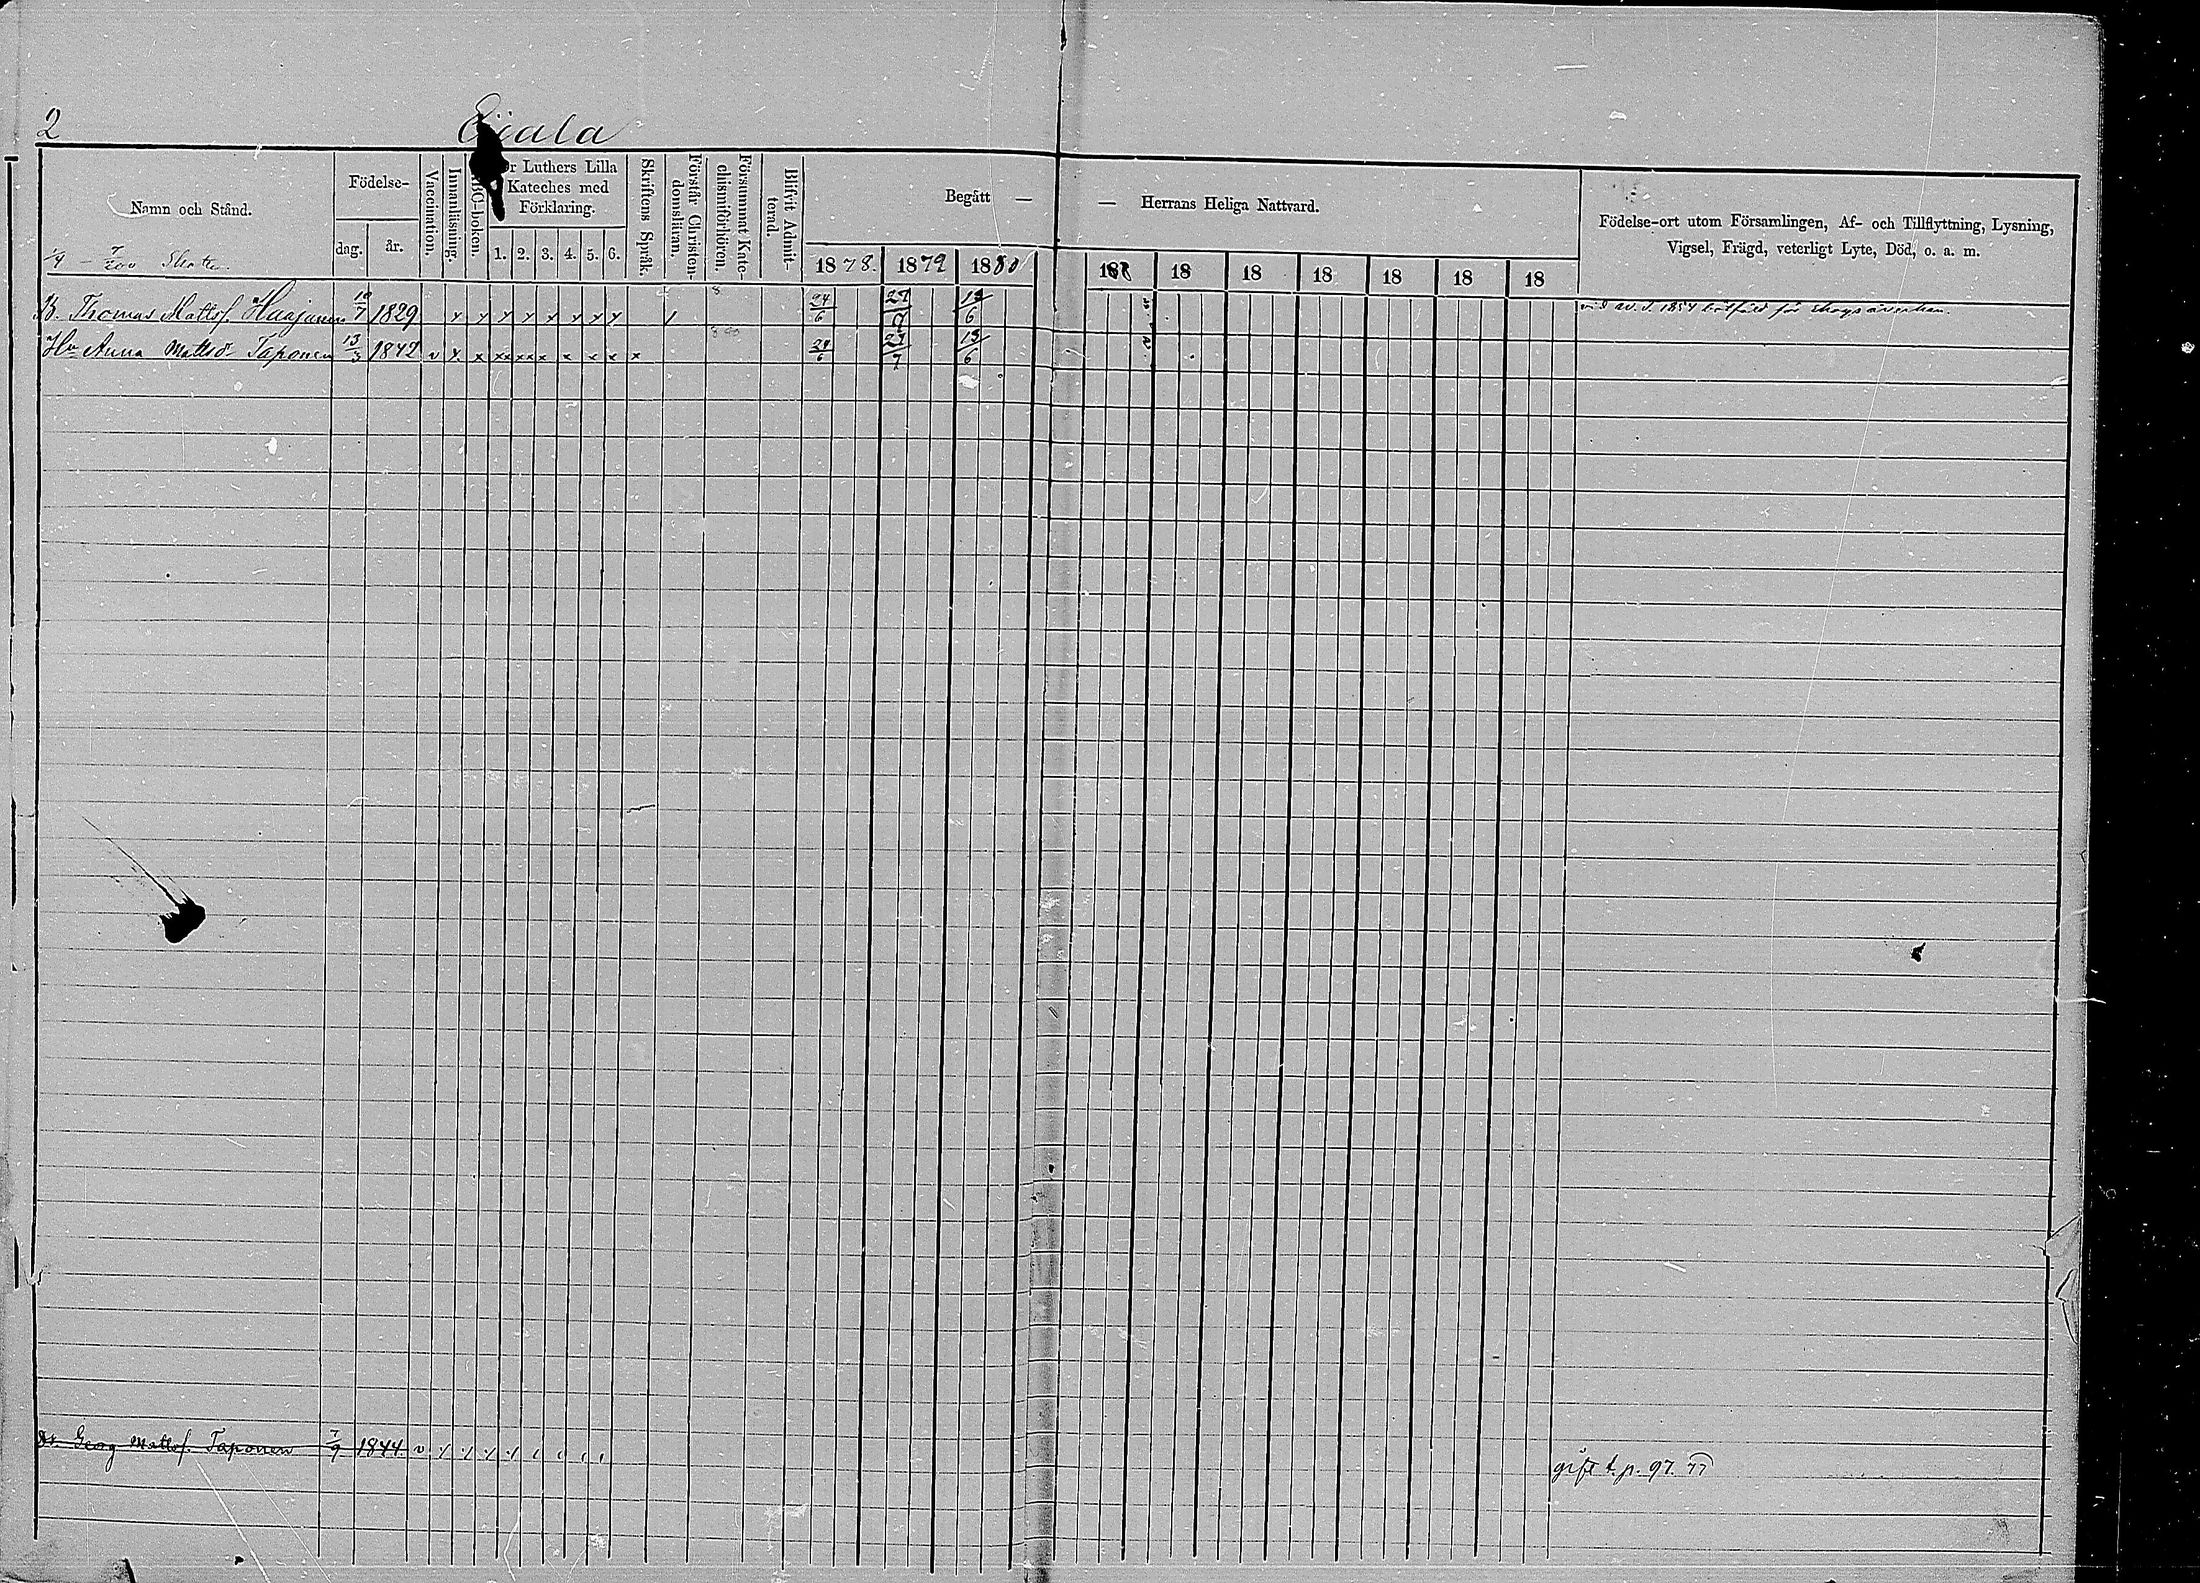 2
Namn och Stånd.
Födelse-
dag.
år.
Vaccination.
Innanläsning.
Luthers Lilla
Kateches med
Förklaring.
1. 2. 3. 4. 5. 6.
Skriftens Språk.
Förstår Christen-
domsläran.
Försummat Kate-
chismiförhören.
Blifvit Admit-
terad.
Begått — — Herrans Heliga Nattvard.
1878. 1879 1880 188 18 18 18 18 18 18
Födelse-ort utom Församlingen, Af- och Tillflyttning, Lysning,
Vigsel, Frägd, veterligt Lyte, Död, o. a. m.
B. Thomas Matts. 1829 x x x x x x x x 24/6 27/7 13/6
Hu Anna Mattsdr Taponen 13/3 1842 v x x xx xx x x x x x 24/6 27/7 13/6
Georg Matts. Taponen 7/9 1844 v
gift t. p. 97. 77